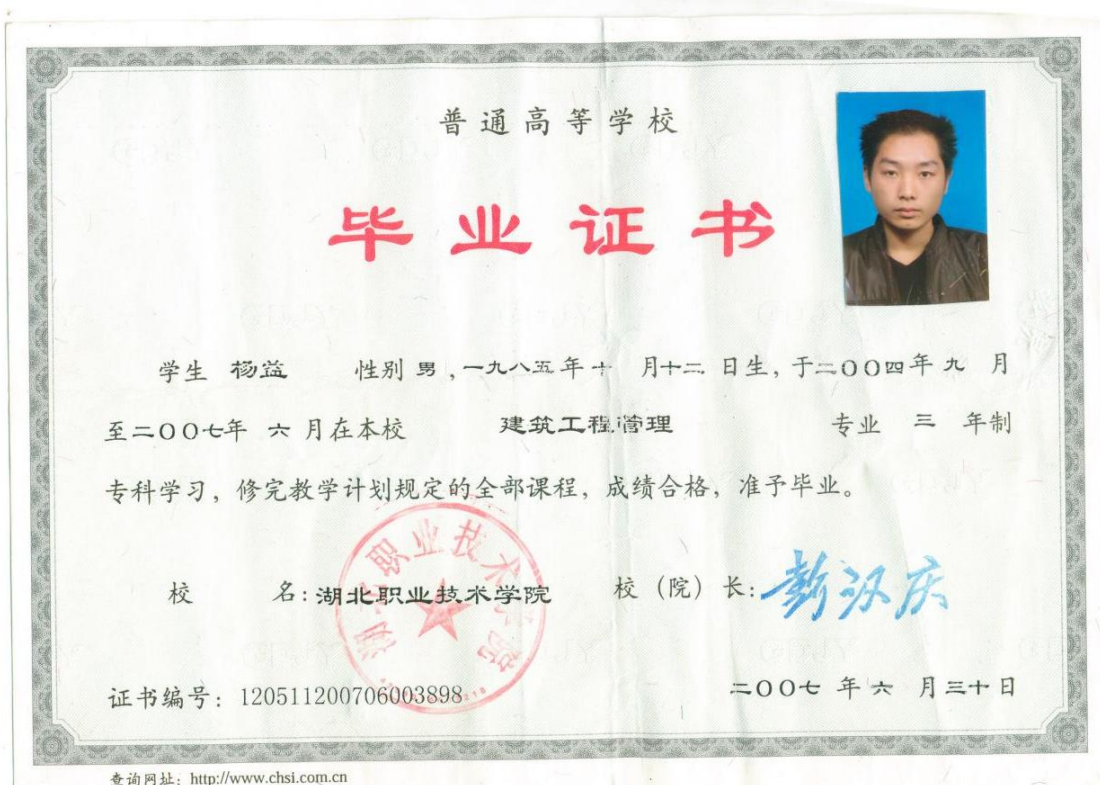 普通高等学校
毕业证书
学生 杨益 性别 男，一九八五年十 月十二 日生，于二〇〇四年 九 月
至二〇〇七年 六 月在本校 建筑工程管理 专业 三 年制
专科学习，修完教学计划规定的全部课程，成绩合格，准予毕业。
校 名：湖北职业技术学院 校（院）长：彭汉庆
湖北职业技术学院
证书编号：120511200706003898 二〇〇七 年 六 月三十日
查询网址：http://www.chsi.com.cn